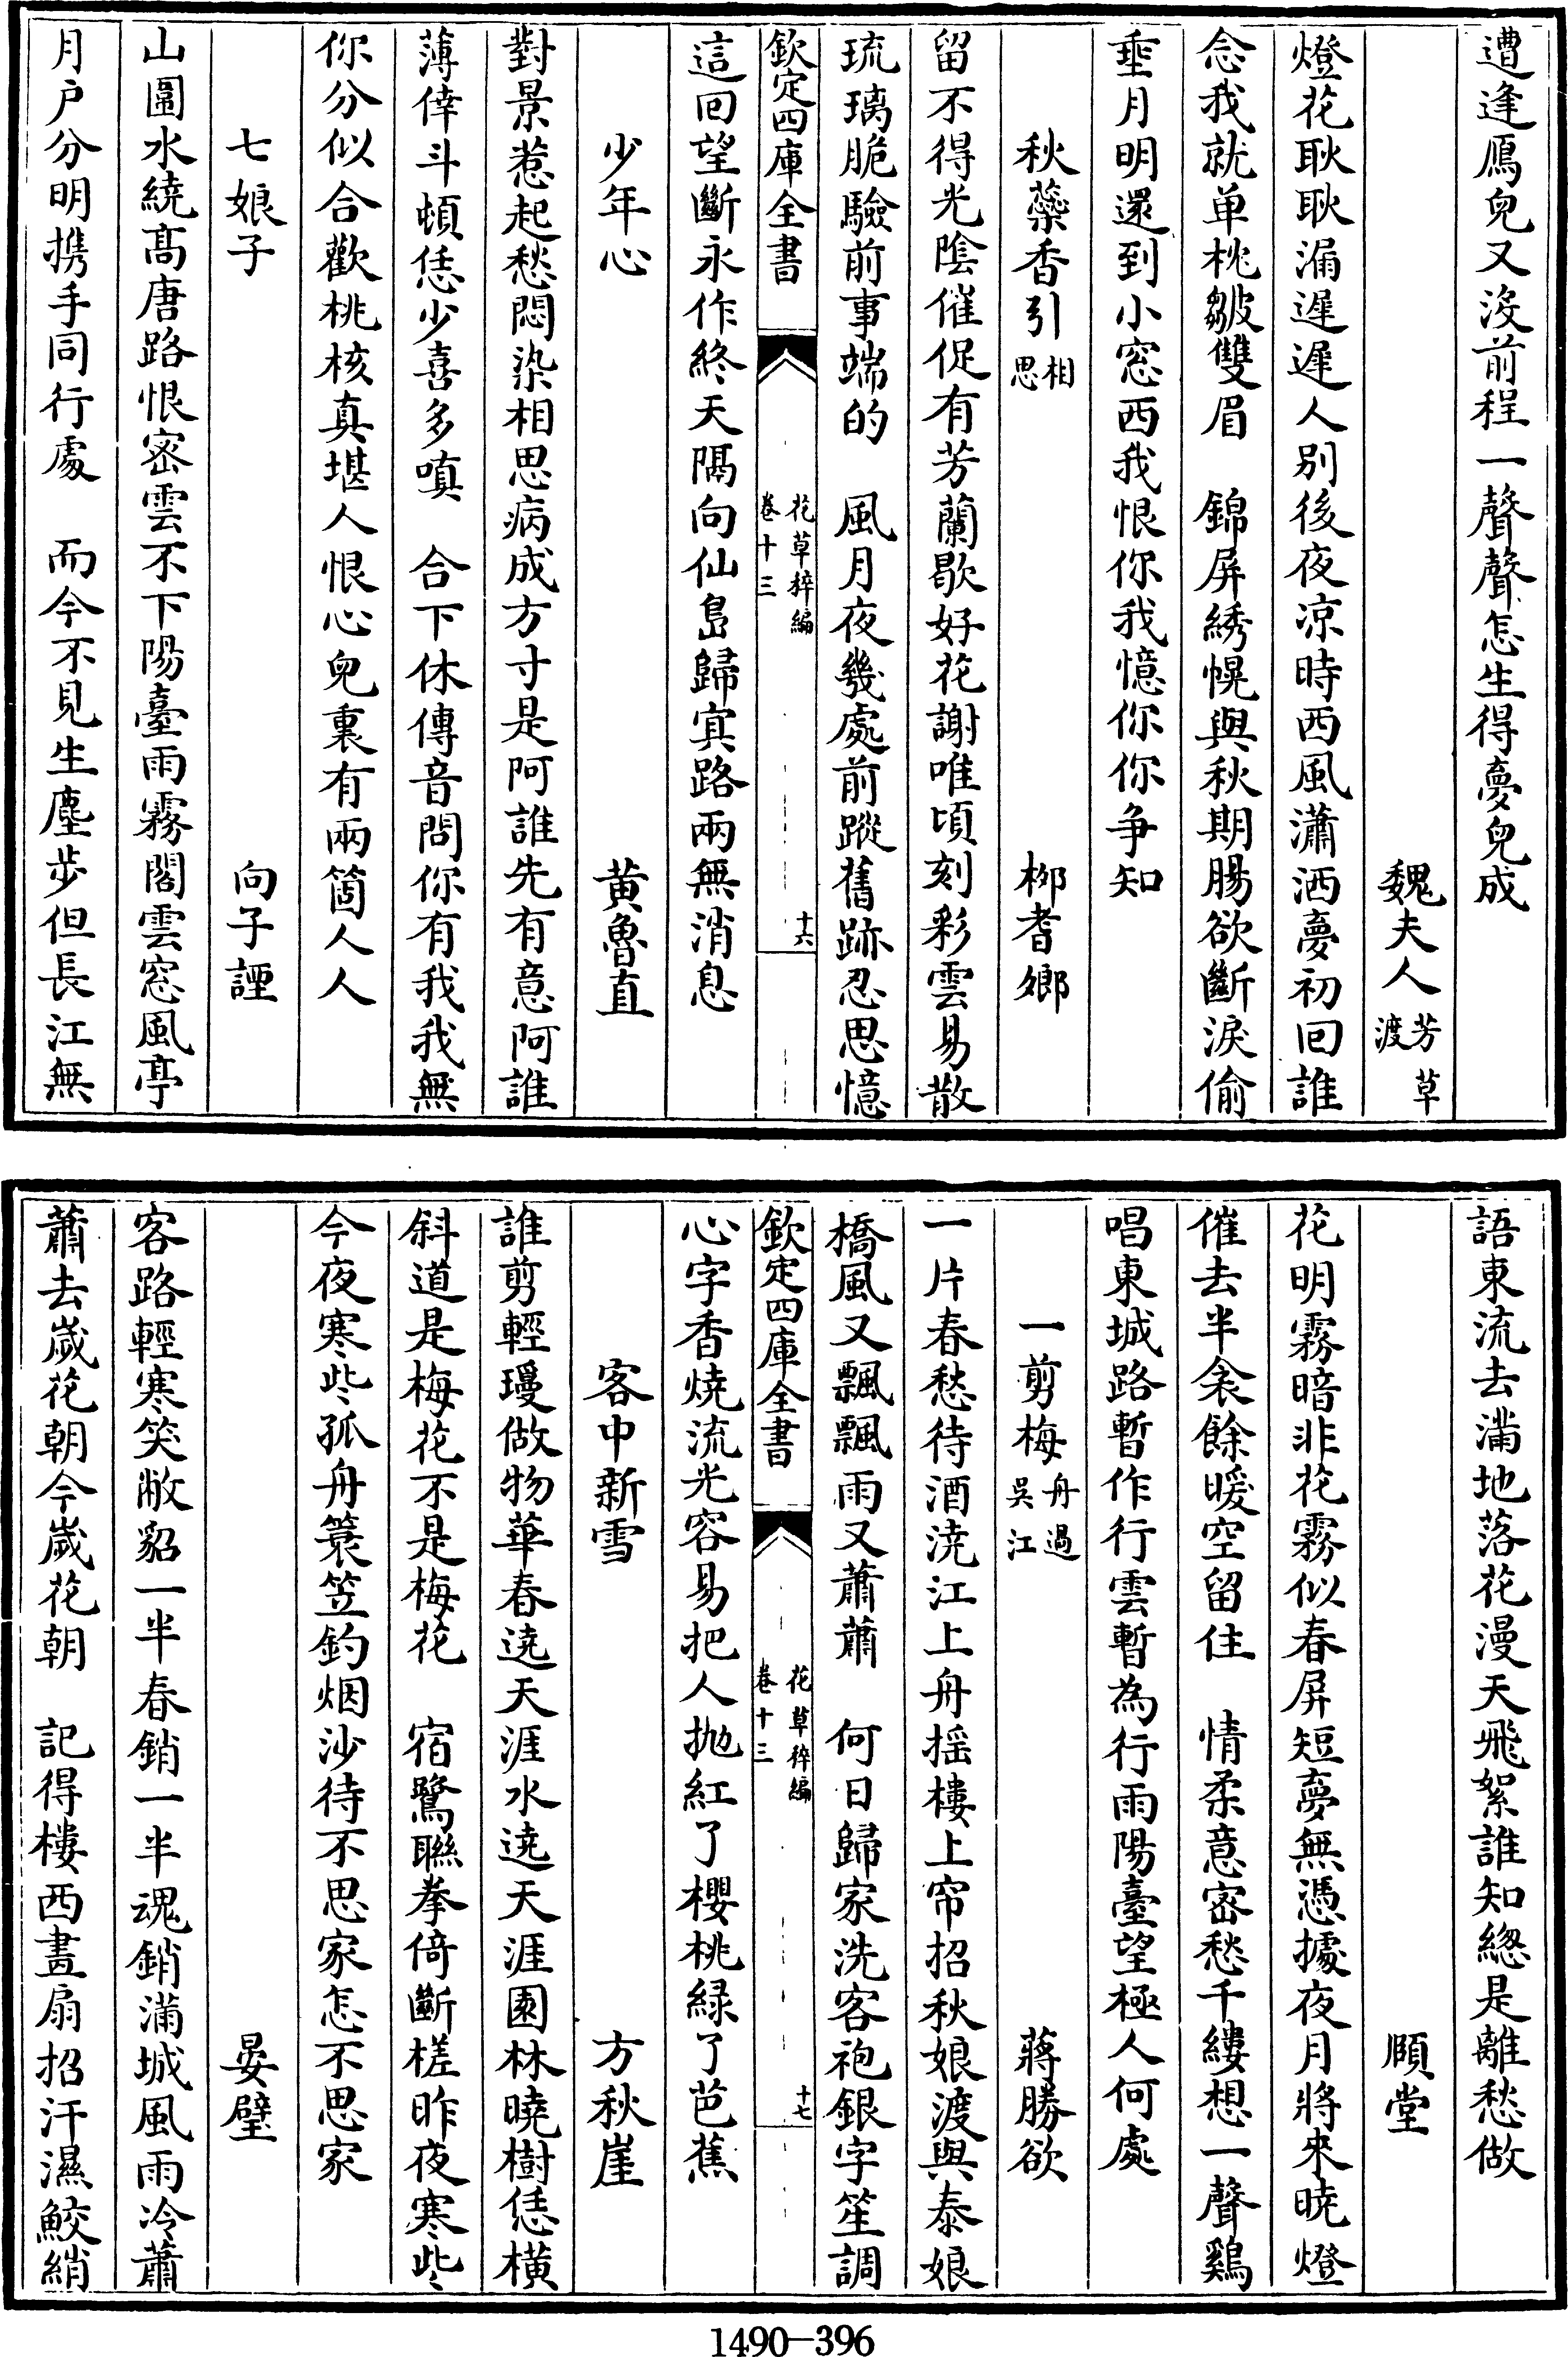 遭逢鴈兒又没前程一聲聲怎生得夢兒成
魏夫人芳草渡
燈花耿耿漏遲遲人别後夜凉時西風瀟洒夢初回誰
念我就单枕皺雙眉　錦屏綉幌與秋期腸欲斷淚偷
垂月明還到小窓西我恨你我憶你你争知
秋蘂香引相思　柳耆卿
留不得光陰催促有芳蘭歇好花謝唯頃刻彩雲易散
琉璃脆驗前事端的　風月夜幾處前蹤舊跡忍思憶
欽定四庫全書　花草稡編卷十三　十六
這回望斷永作終天隔向仙島歸冥路兩無消息
少年心　黄魯直
對景惹起愁悶染相思病成方寸是阿誰先有意阿誰
薄倖斗頓恁少喜多嗔　合下休傳音問你有我我無
你分似合歡桃核真堪人恨心兒裏有兩箇人人
七娘子　向子諲
山圍水繞髙唐路恨密雲不下陽臺雨霧閣雲窓風亭
月户分明携手同行處　而今不見生塵步但長江無
語東流去滿地落花漫天飛絮誰知總是離愁做
順堂
花明霧暗非花霧似春屏短夢無憑據夜月將來曉燈
催去半衾餘暖空留住　情柔意密愁千縷想一聲鷄
唱東城路暫作行雲暫為行雨陽臺望極人何處
一剪梅舟過吳江　蔣勝欲
一片春愁待酒澆江上舟摇樓上帘招秋娘渡與泰娘
橋風又飄飄雨又蕭蕭　何日歸家洗客袍銀字笙調
欽定四庫全書　花草稡編卷十三　十七
心字香燒流光容易把人抛紅了櫻桃緑了芭蕉
客中新雪　方秋崖
誰剪輕瓊做物華春遶天涯水遶天涯園林曉樹恁横
斜道是梅花不是梅花　宿鷺聯拳倚斷槎昨夜寒些
今夜寒些孤舟簑笠釣烟沙待不思家怎不思家
晏璧
客路輕寒笑敝貂一半春銷一半魂銷滿城風雨冷蕭
蕭去嵗花朝今嵗花朝　記得樓西畫扇招汗濕鮫綃
1490—396